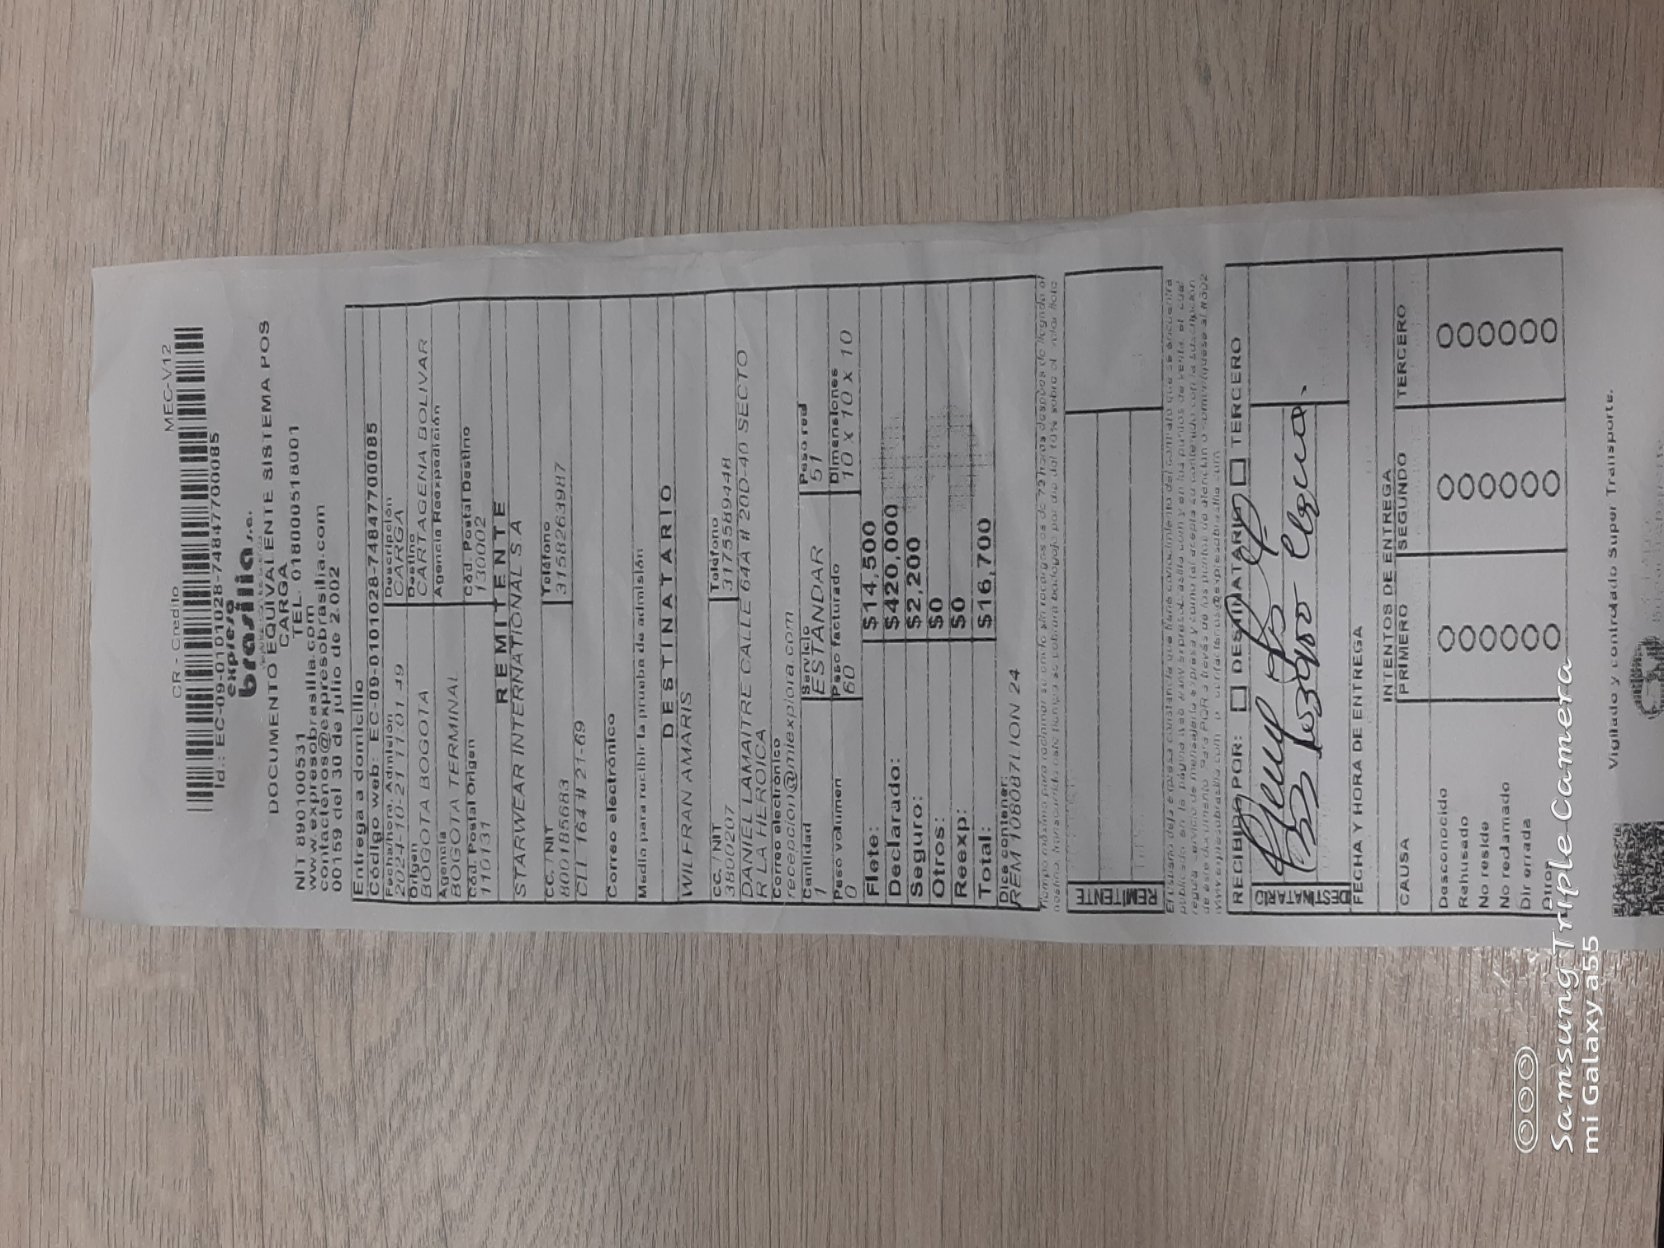 CR - Credito MEC-V12
Id.: EC-09-0101028-7484770085
expreso
brasilia s.a.
DOCUMENTO EQUIVALENTE SISTEMA POS
CARGA
NIT 890100531 TEL. 018000518001
www.expresobrasilia.com
contactenos@expresobrasilia.com
00159 del 30 de julio de 2.002
Entrega a domicilio
Código web: EC-09-0101028-7484770085
Fecha/hora. Admisión Descripción
2024-10-21 11:01:49 CARGA
Origen Destino
BOGOTA BOGOTA CARTAGENA BOLIVAR
Agencia Agencia Reexpedición
BOGOTA TERMINAL
Cód. Postal Origen Cód. Postal Destino
110131 130002
REMITENTE
STARWEAR INTERNATIONAL S A
CC. /NIT Teléfono
800185683 3158263987
CLL 164 # 21-69
Correo electrónico
Medio para recibir la prueba de admisión
DESTINATARIO
WILFRAN AMARIS
CC. /NIT Teléfono
3800207 3175589448
DANIEL LAMAITRE CALLE 64A # 20D-40 SECTO
R LA HEROICA
Correo electrónico
recepcion@miexplora.com
Cantidad Servicio Peso real
1 ESTANDAR 51
Peso volumen Peso facturado Dimensiones
0 60 10 x 10 x 10
Flete: $14,500
Declarado: $420,000
Seguro: $2,200
Otros: $0
Reexp: $0
Total: $16,700
Dice contener:
REM 108087LION 24
REMITENTE
RECIBIDO POR: DESTINATARIO TERCERO
DESTINATARIO
FECHA Y HORA DE ENTREGA
INTENTOS DE ENTREGA
CAUSA PRIMERO SEGUNDO TERCERO
Desconocido
Rehusado
No reside
No reclamado
Dir errada
Otros
Vigilado y controlado Super Transporte.
Samsung Triple Camera
mi Galaxy a55